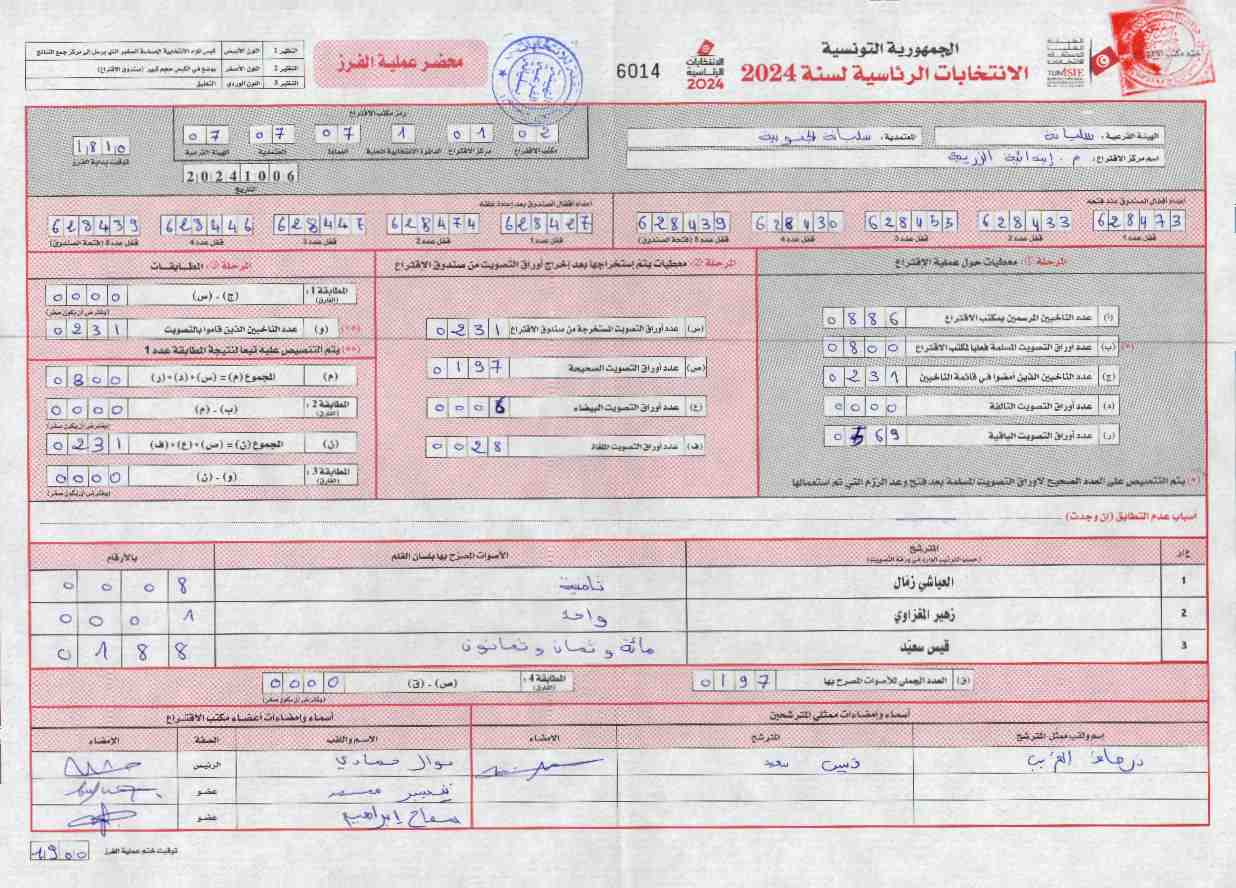 الجمهورية التونسية
الانتخابات الرئاسية لسنة 2024
6014
محضر عملية الفرز
النظير 1 اللون الأبيض
النظير 2 اللون الأصفر يوضع في الكيس حجم كبير (صندوق الاقتراع)
النظير 3 اللون الوردي التعليق
الهيئة الفرعية: سليانة
المعتمدية: سليانة الجنوبية
اسم مركز الاقتراع: م. إبتدائية
رمز مكتب الاقتراع
02 01 1 07 07 07
مكتب الاقتراع مركز الاقتراع الدائرة الانتخابية المحلية العمادة المعتمدية الهيئة الفرعية
20241006
التاريخ
1810
توقيت بداية الفرز
أعداد أقفال الصندوق عند فتحه
628473 628433 628455 628430 628439
قفل عدد 1 قفل عدد 2 قفل عدد 3 قفل عدد 4 قفل عدد 5 (فتحة الصندوق)
أعداد أقفال الصندوق بعد إعادة غلقه
628427 628474 628447 623446 628439
قفل عدد 1 قفل عدد 2 قفل عدد 3 قفل عدد 4 قفل عدد 5 (فتحة الصندوق)
المرحلة 1: معطيات حول عملية الاقتراع
(أ) عدد الناخبين المرسمين بمكتب الاقتراع 0886
(*) (ب) عدد أوراق التصويت المسلمة فعليا لمكتب الاقتراع 0800
(ج) عدد الناخبين الذين أمضوا في قائمة الناخبين 0231
(د) عدد أوراق التصويت التالفة 0000
(ر) عدد أوراق التصويت الباقية 0569
(*) يتم التنصيص على العدد الصحيح لأوراق التصويت المسلمة بعد فتح وعد الرزم التي تم استعمالها
المرحلة 2: معطيات يتم إستخراجها بعد إخراج أوراق التصويت من صندوق الاقتراع
(س) عدد أوراق التصويت المستخرجة من صندوق الاقتراع 0231
(ص) عدد أوراق التصويت الصحيحة 0197
(ع) عدد أوراق التصويت البيضاء 0006
(ف) عدد أوراق التصويت الملغاة 0028
المرحلة 3: المطابقات
المطابقة 1: (الفارق) (ج) - (س) 0000
(يفترض أن يكون صفر)
(**) (و) عدد الناخبين الذين قاموا بالتصويت 0231
(**) يتم التنصيص عليه تبعا لنتيجة المطابقة عدد 1
(م) المجموع (م) = (س) + (د) + (ر) 0800
المطابقة 2: (الفارق) (ب) - (م) 0000
(يفترض أن يكون صفر)
(ن) المجموع (ن) = (ص) + (ع) + (ف) 0231
المطابقة 3: (الفارق) (و) - (ن) 0000
(يفترض أن يكون صفر)
أسباب عدم التطابق (إن وجدت)
ع/ر المترشح الأصوات المصرح بها بلسان القلم بالأرقام
(حسب الترتيب الوارد في ورقة التصويت)
1 العياشي زمال ثمانية 0008
2 زهير المغزاوي واحد 0001
3 قيس سعيّد مائة و ثمان و ثمانون 0188
(ق) العدد الجملي للأصوات المصرح بها 0197
المطابقة 4: (الفارق) (ص) - (ق) 0000
(يفترض أن يكون صفر)
أسماء وإمضاءات ممثلي المترشحين
إسم ولقب ممثل المترشح المترشح الامضاء
قيس سعيد
أسماء وإمضاءات أعضاء مكتب الاقتراع
الاسم واللقب الصفة الامضاء
نوال حمادي الرئيس
عضو
سماح إبراهيم عضو
توقيت ختم عملية الفرز 1900